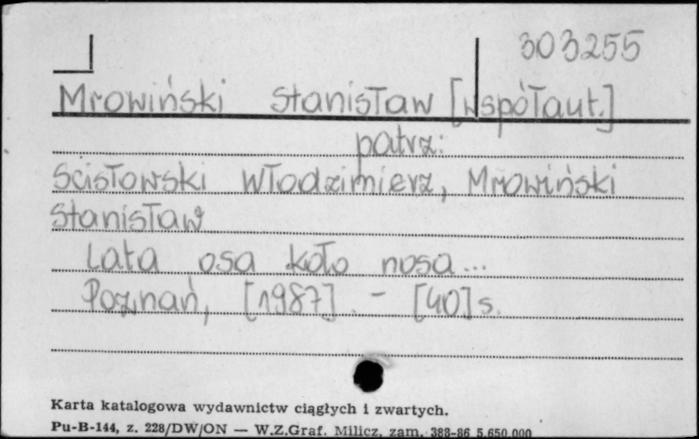 303255
Mrowiński Stanisław [współaut.]
patrz:
Ścisłowski Włodzimierz, Mrowiński
Stanisław
Lata osa koło nosa...
Poznań, [1987]. - [40] s.
Karta katalogowa wydawnictw ciągłych i zwartych.
Pu-B-144, z. 228/DW/ON — W.Z.Graf. Milicz, zam. 388-86 5.650.000